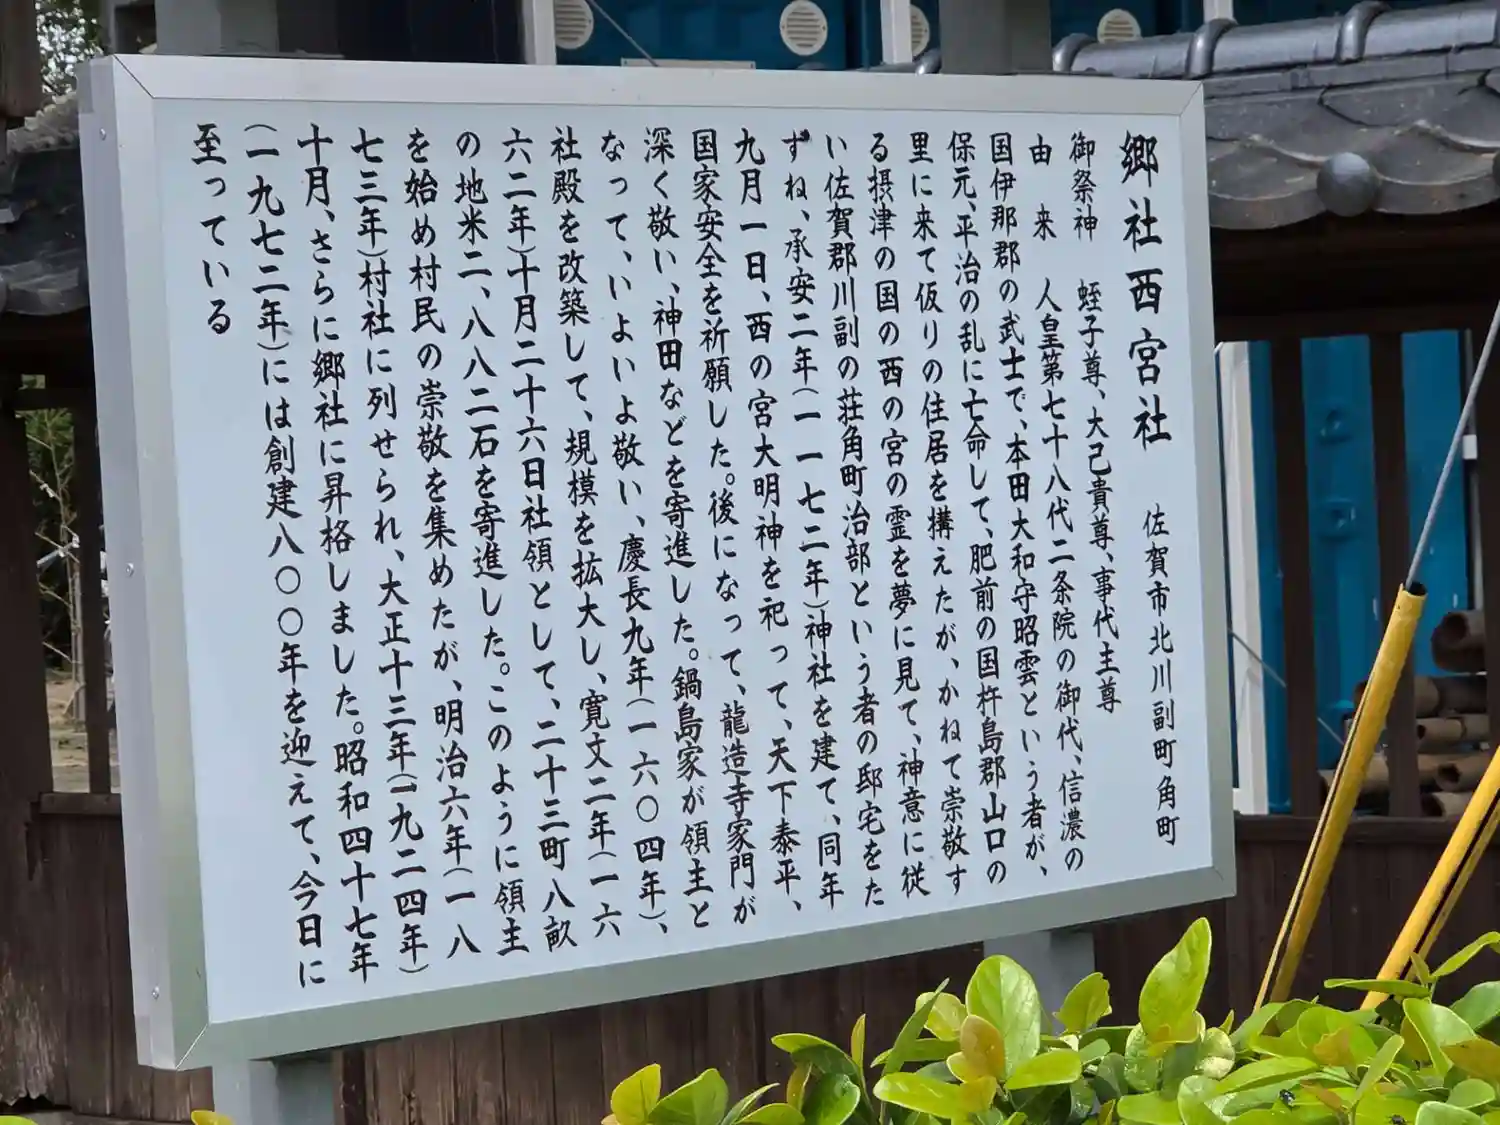 郷社西宮社　佐賀市北川副町角町
御祭神　蛭子尊、大己貴尊、事代主尊
由　来　人皇第七十八代二条院の御代、信濃の
国伊那郡の武士で、本田大和守昭雲という者が、
保元、平治の乱に亡命して、肥前の国杵島郡山口の
里に来て仮りの住居を構えたが、かねて崇敬す
る摂津の国の西の宮の霊を夢に見て、神意に従
い佐賀郡川副の荘角町治部という者の邸宅をた
ずね、承安二年(一一七二年)神社を建て、同年
九月一日、西の宮大明神を祀って、天下泰平、
国家安全を祈願した。後になって、龍造寺家門が
深く敬い、神田などを寄進した。鍋島家が領主と
なって、いよいよ敬い、慶長九年(一六〇四年)、
社殿を改築して、規模を拡大し、寛文二年(一六
六二年)十月二十六日社領として、二十三町八畝
の地米二、八八二石を寄進した。このように領主
を始め村民の崇敬を集めたが、明治六年(一八
七三年)村社に列せられ、大正十三年(一九二四年)
十月、さらに郷社に昇格しました。昭和四十七年
(一九七二年)には創建八〇〇年を迎えて、今日に
至っている